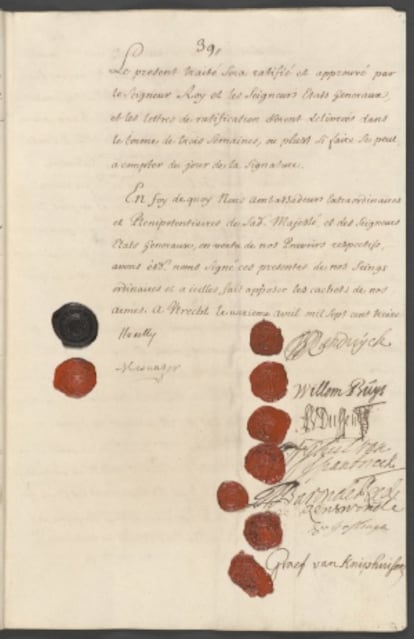 39,
Le present traité sera ratifié et approuvé par
le Seigneur Roy et les Seigneurs Etats Generaux,
et les lettres de ratification seront delivrées dans
le terme de trois Semaines, ou plustost si faire se peut,
a compter du jour de la Signature.
En foy de quoy Nous Ambassadeurs Extraordinaires
et Plenipotentiaires de Sad. Majesté, et des Seigneurs
Etats Generaux, en vertu de nos Pouvoirs respectifs,
avons esd. noms signé ces presentes de nos Seings
ordinaires et a icelles fait apposer les cachets de nos
armes. A Utrecht le onzieme avril mil sept cent treize
Huxelles
Mesnager
Randwijck
Willem Buijs
BvDussen
van
Spanbroek
Baron de Reede
Renswoude
Graef van Kniphuisen